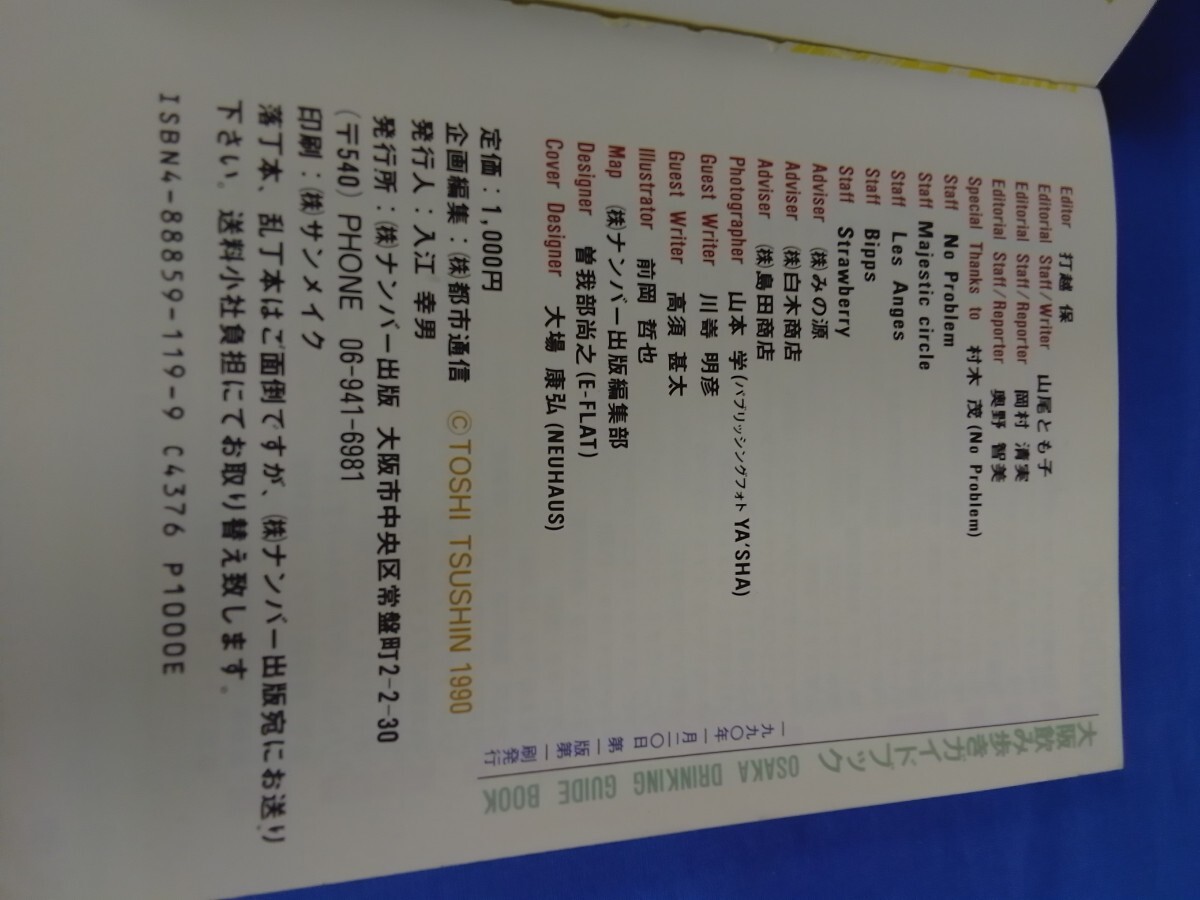 大阪飲み歩きガイドブック OSAKA DRINKING GUIDE BOOK
一九九〇年一一月二〇日 第一版第一刷発行
Editor 打越 保
Editorial Staff/Writer 山尾とも子
Editorial Staff/Reporter 岡村 清実
Editorial Staff/Reporter 奥野 智美
Special Thanks to 村木 茂(No Problem)
Staff No Problem
Staff Majestic circle
Staff Les Anges
Staff Bipps
Staff Strawberry
Adviser ㈱みの源
Adviser ㈱白木商店
Adviser ㈱島田商店
Photographer 山本 学(パブリッシングフォト YA'SHA)
Guest Writer 川嵜 明彦
Guest Writer 高須 甚太
Illustrator 前岡 哲也
Map ㈱ナンバー出版編集部
Designer 曽我部尚之(E-FLAT)
Cover Designer 大場 康弘(NEUHAUS)
定価：1,000円
企画編集：㈱都市通信 ©TOSHI TSUSHIN 1990
発行人：入江 幸男
発行所：㈱ナンバー出版 大阪市中央区常盤町2-2-30
(〒540) PHONE 06-941-6981
印刷：㈱サンメイク
落丁本、乱丁本はご面倒ですが、㈱ナンバー出版宛にお送り
下さい。送料小社負担にてお取り替え致します。
ISBN4-88859-119-9 C4376 P1000E